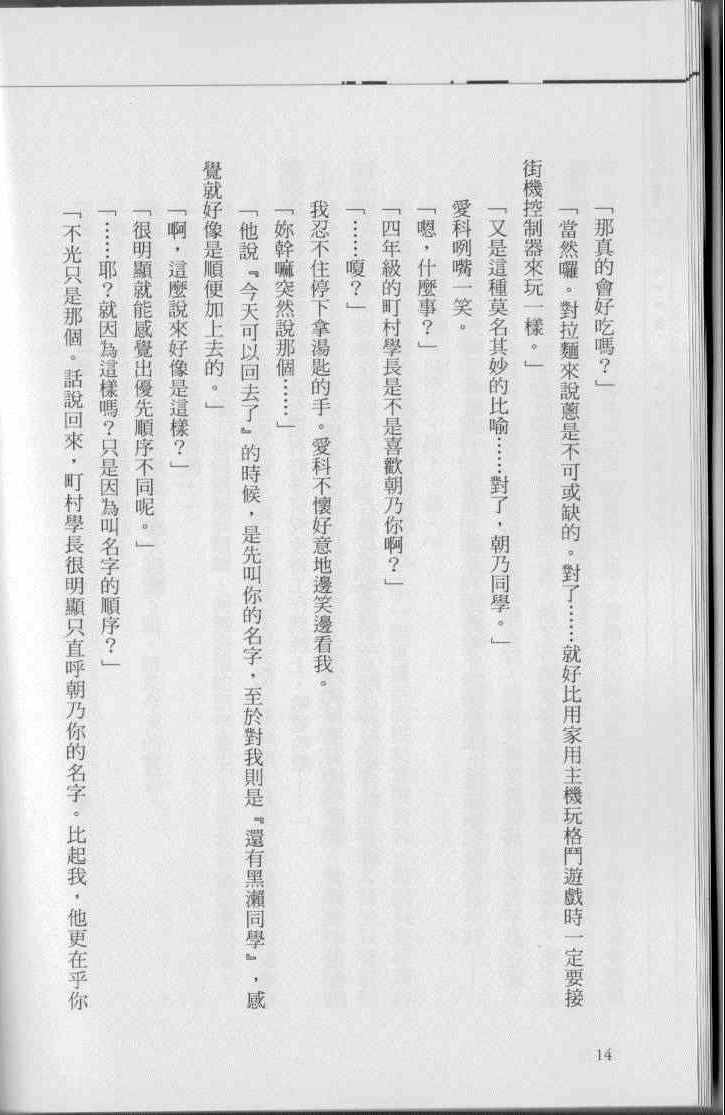 「那真的會好吃嗎？」
「當然囉。對拉麵來說蔥是不可或缺的。對了……就好比用家用主機玩格鬥遊戲時一定要接
街機控制器來玩一樣。」
「又是這種莫名其妙的比喻……對了，朝乃同學。」
愛科咧嘴一笑。
「嗯，什麼事？」
「四年級的町村學長是不是喜歡朝乃你啊？」
「……嗄？」
我忍不住停下拿湯匙的手。愛科不懷好意地邊笑邊看我。
「妳幹嘛突然說那個……」
「他說『今天可以回去了』的時候，是先叫你的名字，至於對我則是『還有黑瀨同學』，感
覺就好像是順便加上去的。」
「啊，這麼說來好像是這樣？」
「很明顯就能感覺出優先順序不同呢。」
「……耶？就因為這樣嗎？只是因為叫名字的順序？」
「不光只是那個。話說回來，町村學長很明顯只直呼朝乃你的名字。比起我，他更在乎你
14